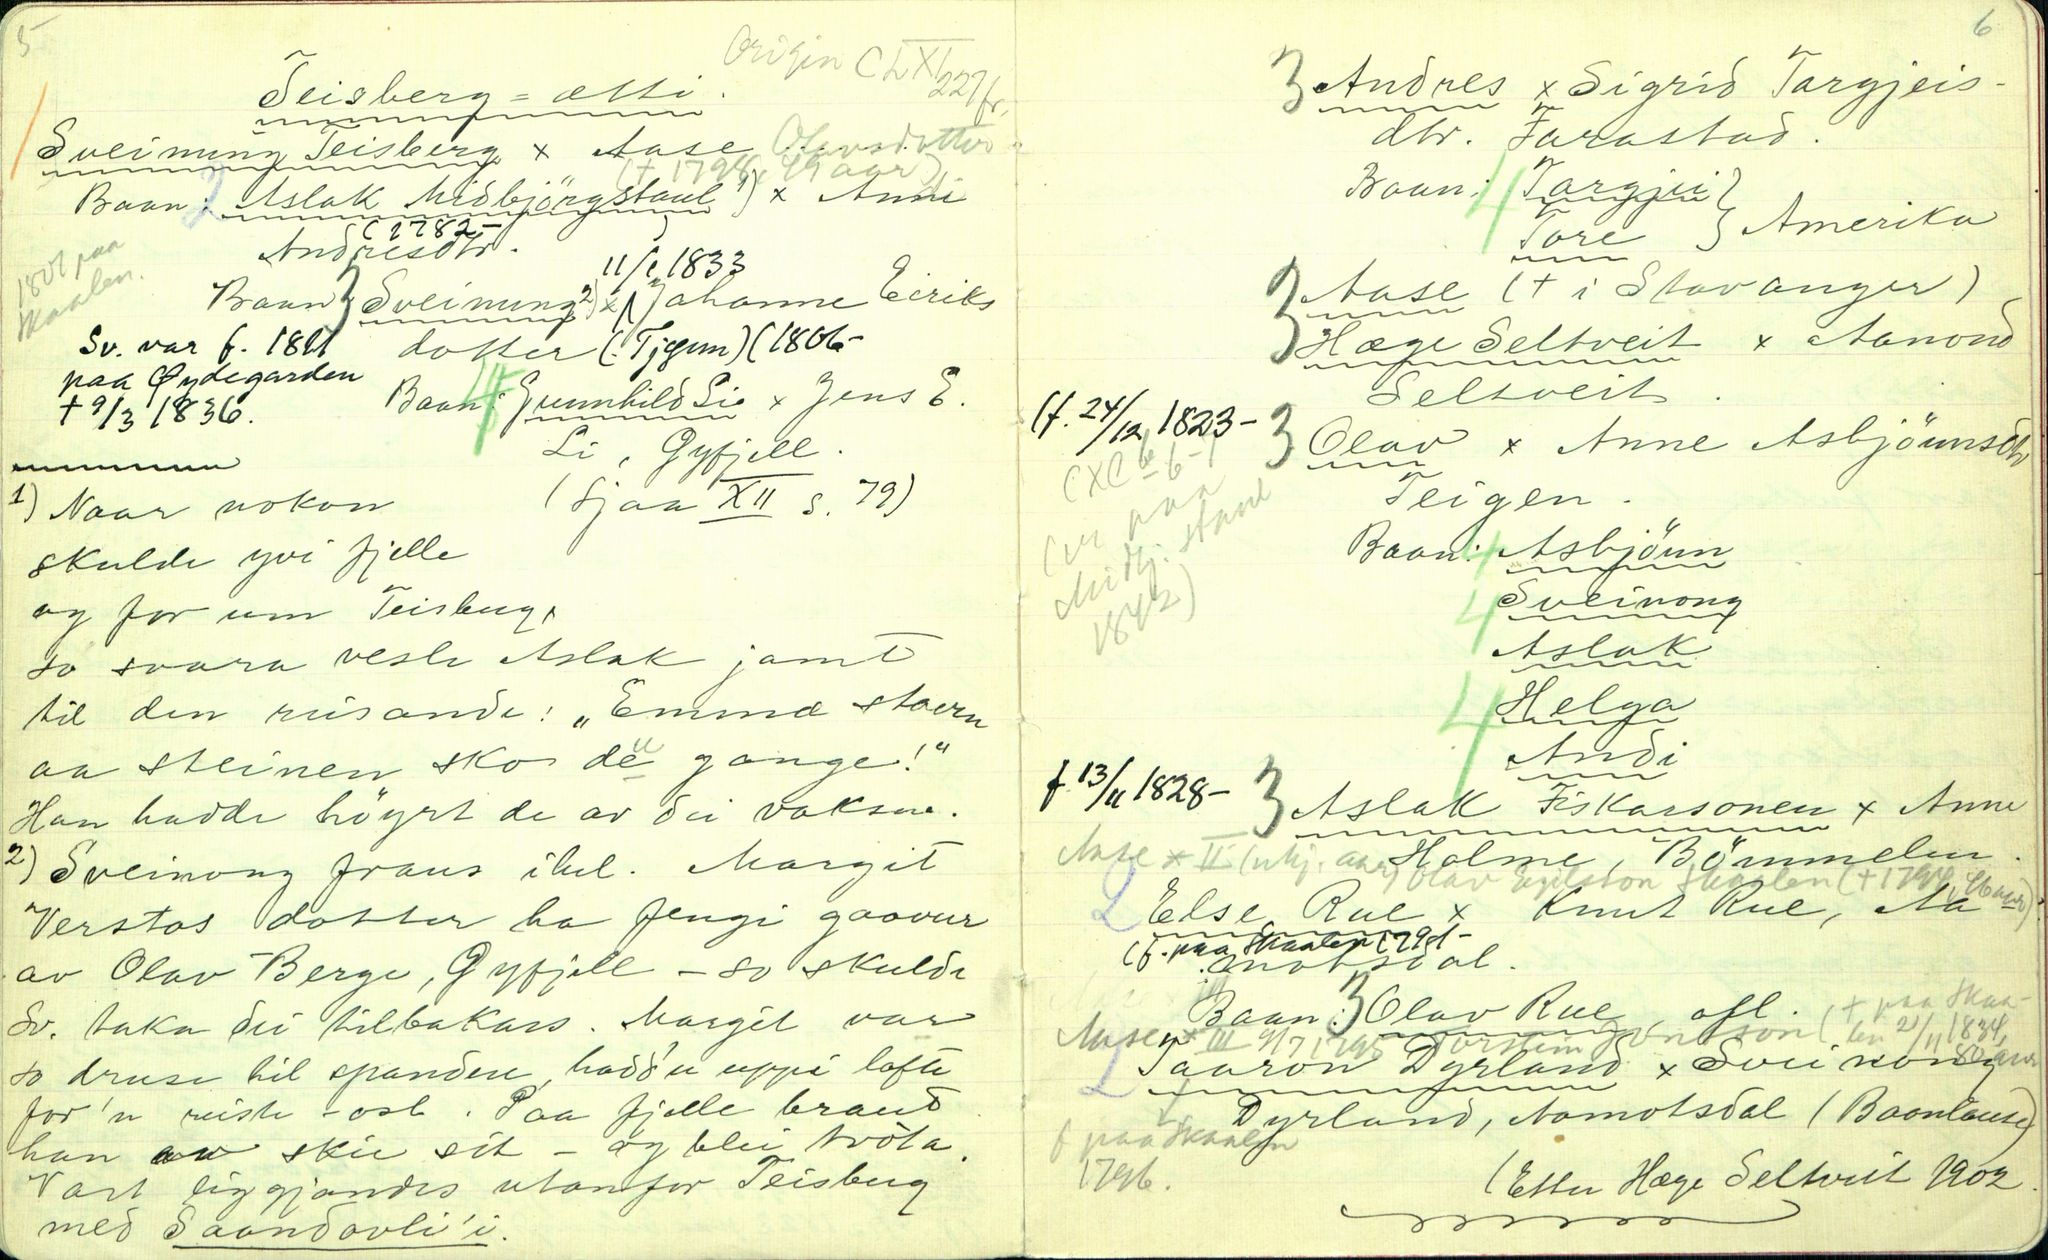 5
Origin CLXI
227 fr.
Teisberg-ætti.
Sveinung Teisberg x Aase Olavsdotter
(+ 1798, 49 aar)
Baan: 2 Aslak Midbjörgstaul 1) x Anni
(1782- )
Andresdtr.
1801 paa
Skaalen.
11/1 1833
Baan 3 Sveinung 2) x Johanne Eiriks
dotter (Tjønn) (1806-
Sv. var f. 1801
paa Øydegarden
+ 9/3 1836.
Baan: 4 Gunnhild Li x Jens E.
Li, Gyfjell.
(sjaa XII s. 79)
1) Naar nokon
skulde yvi fjelle
og for um Teisberg,
so svara vesle Aslak jamt
til den reisande: „Emmæ staern
aa steinen sko dë gange!"
Han hadde höyrt de av dei vaksne.
2) Sveinong fraus ihel. Margit
Verstos dotter ha fengi gaavur
av Olav Berge, Gyfjell - so skulde
Sv. taka dei tilbakars. Margit var
so druse til spandere, hadd'u uppi lofte
for'n reiste - ost. Paa fjelle braut
han skie sit - og blei tröta.
Vart liggjandes utanfor Teisberg
med Saandavli'i.
6
3 Andres x Sigrid Targjeis-
dtr. Farastad.
Baan: 4 Targjei }
Tore } Amerika
3 Aase (+ i Stavanger)
3 Hæge Seltveit x Aanond
Seltveit.
(f. 24/12 1823-
3 Olav x Anne Asbjönnsdtr
Teigen.
(var paa
Midbj. staul
1842)
Baan: 4 Asbjönn
4 Sveinong
Aslak
4 Helga
Andi
f. 13/11 1828-
3 Aslak Fiskarsonen x Anne
Holme, Bömmelen.
Aase x II Olav Egilsson Skaalen (+ 1794,
2 Else Rue x Knut Rue, Aa
(f. paa Skaalen 1791-
motsdal.
Baan: 3 Olav Rue, ofl.
Aase x III 9/7 1795 Torstein Jonsson (+ paa Skaa-
len 21/11 1834,
80 aar
2 Taaron Dyrland x Sveinong
Dyrland, Aamotsdal (Baonlause)
f. paa Skaalen
1796.
(Etter Hæge Seltveit 1902.